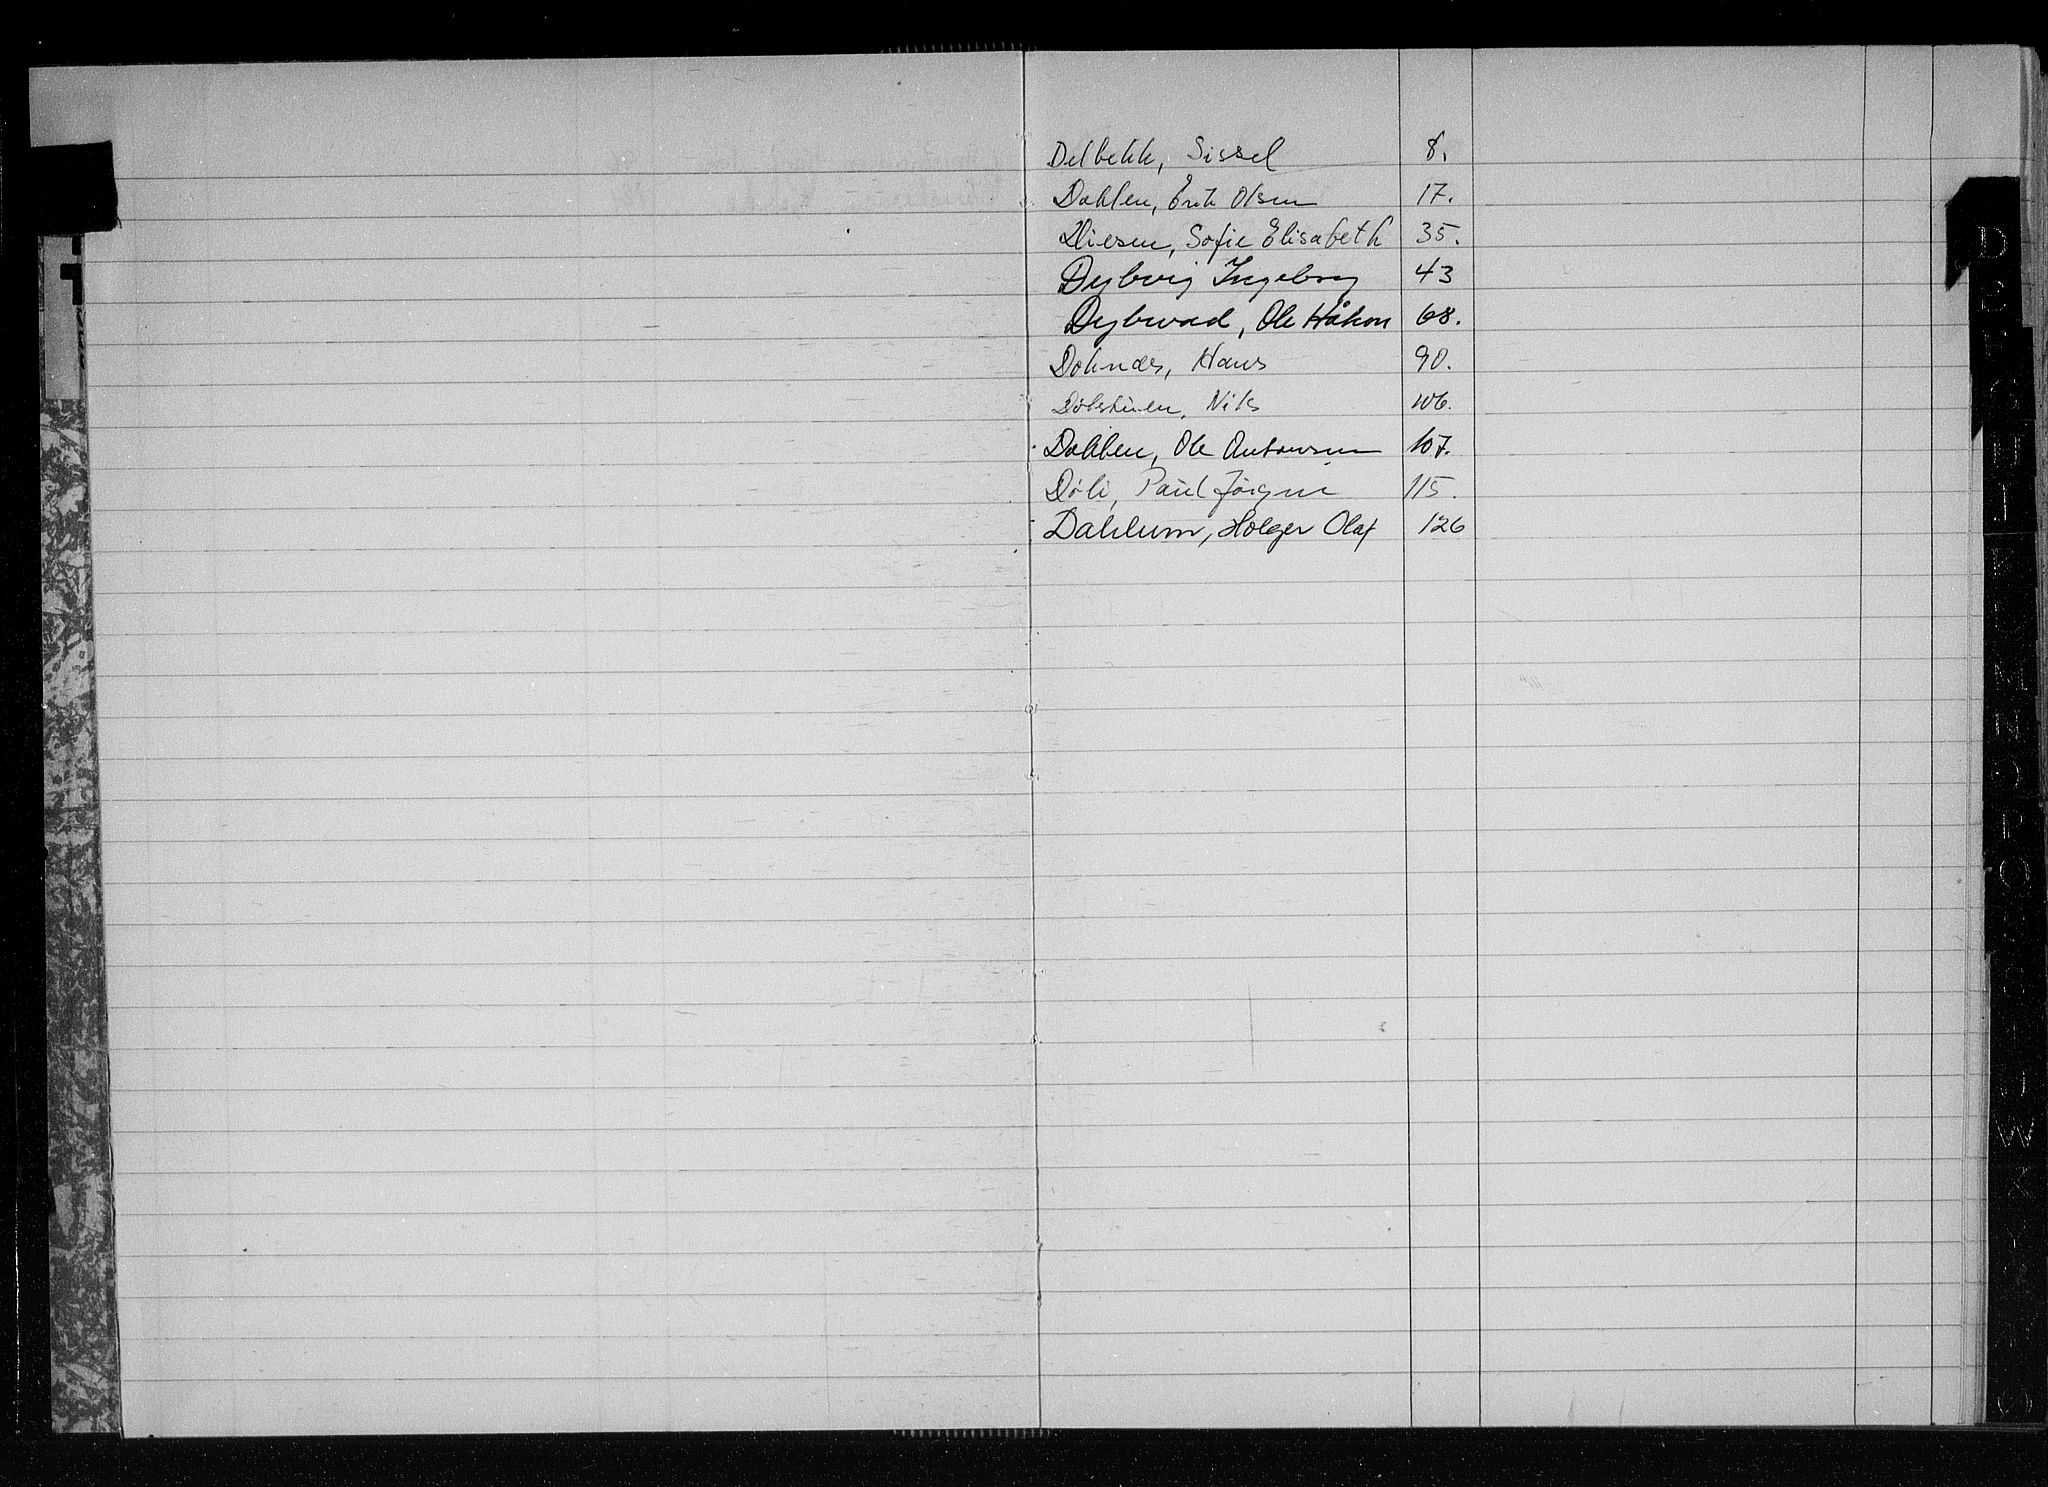 Delbekk, Sissel 8.
Dahlen, Erik Olsen 17.
Diesen, Sofie Elisabeth 35.
Dybvig Ingeborg 43
Dybwad, Ole Håkon 68.
Doknæs, Hans 90.
Nils 106.
Dahlen, Ole Antonsen 107.
Døli, Paul Jörgen 115.
Dahlum, Holger Olaf 126
D